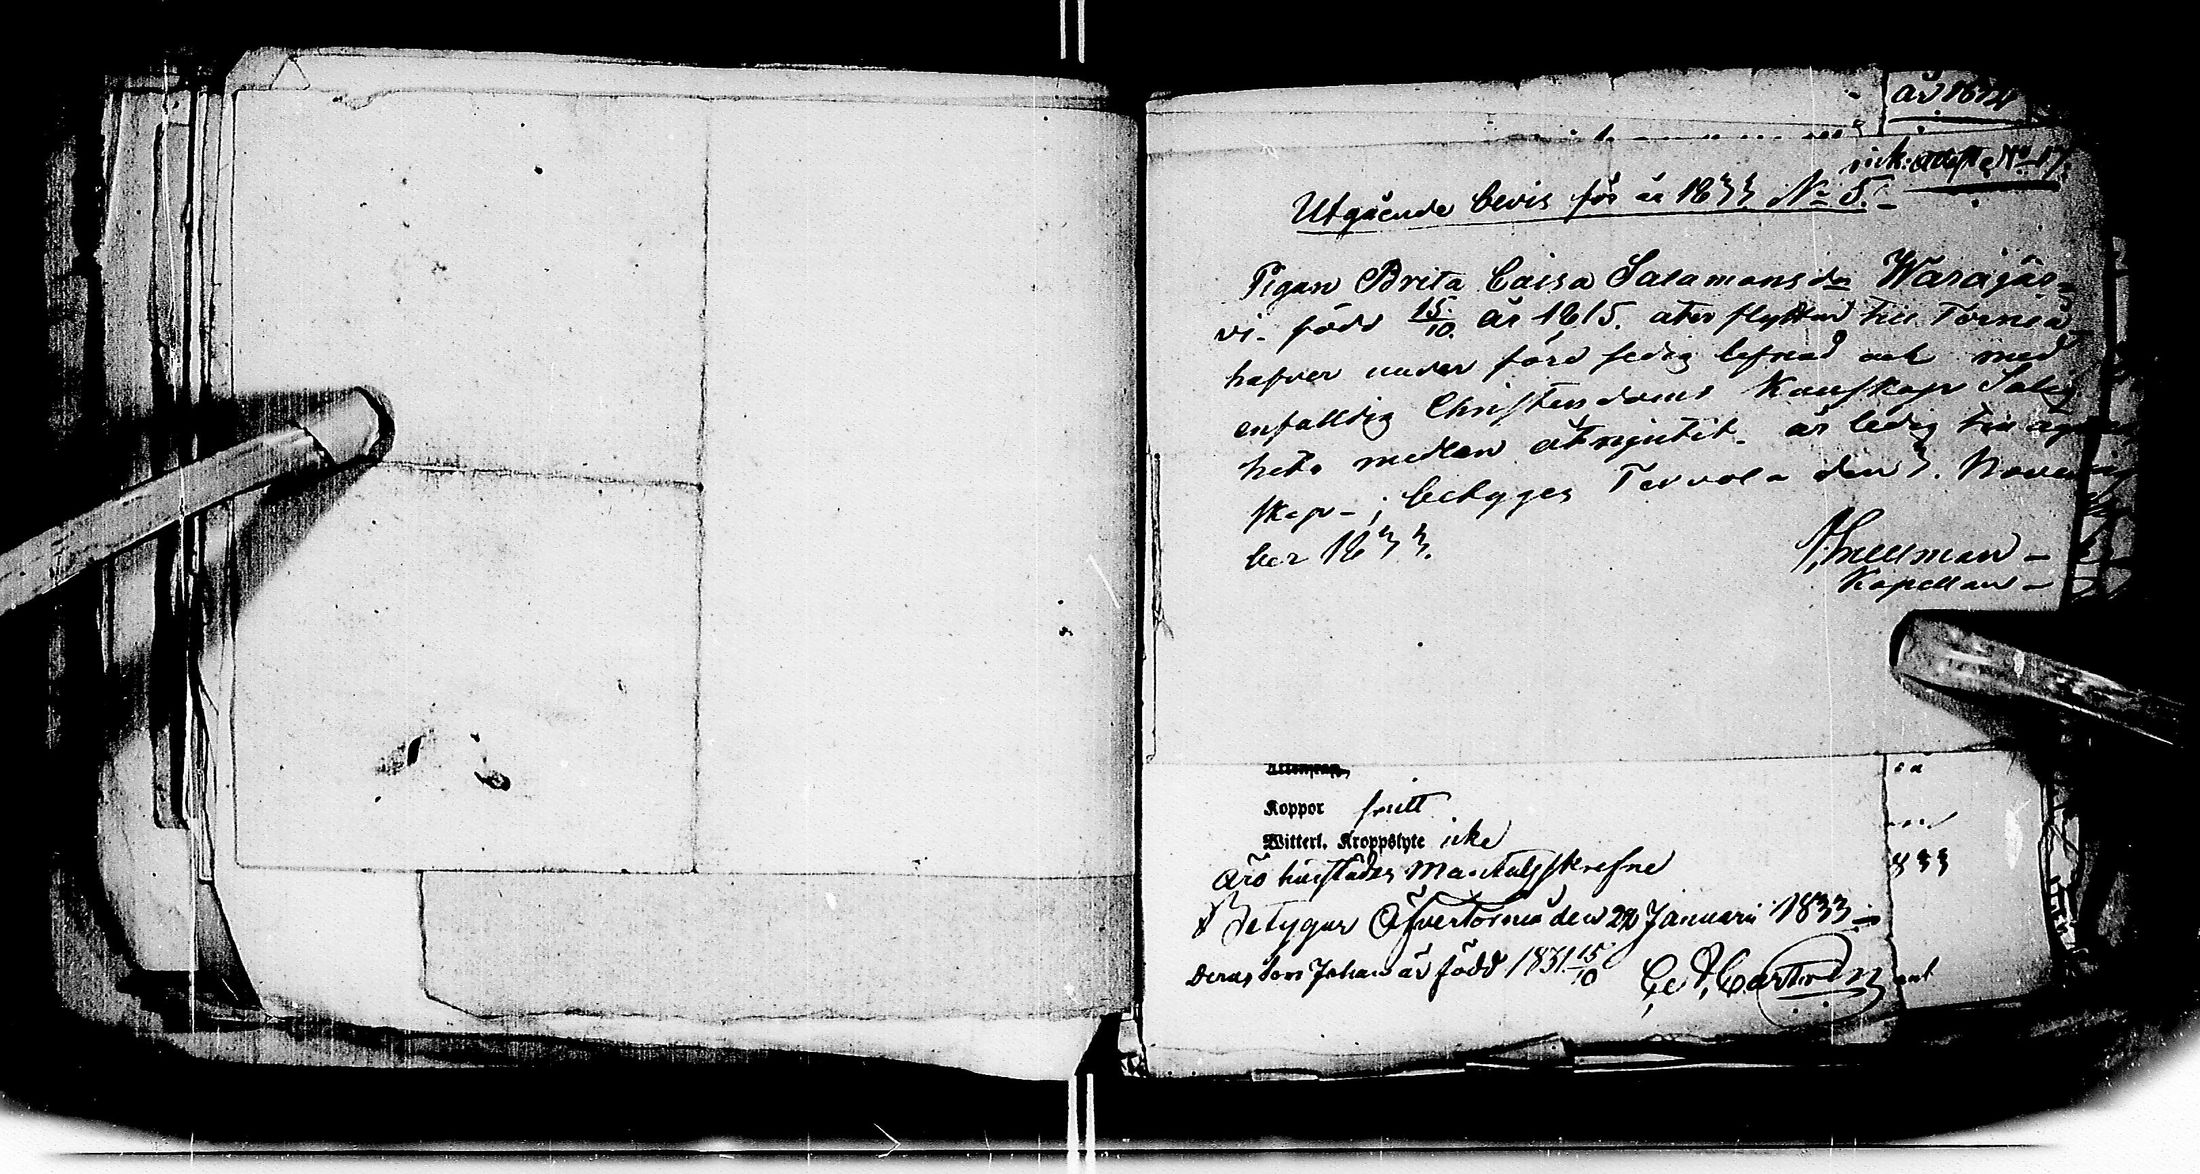 år 1834
ink. attest No 17.
Utgående bevis för år 1833 No 5.
Pigan Brita Caisa Salamonsdr Warajär-
vi. född 15/10. år 1815. åter flyttar till Torneå
hafver under förd sedig lefnad och med
enfalldig Christendoms Kunskap Salig
hets medlen åtnjutit. är ledig till ägten
skap-; betyges Tervola den 3. Novem
ber 1833.
Snellman-
Kapellan-
Koppor haft
Witterl. Kroppslyte icke
Äro härstädes Mantalsskrefne
Betygar Öfvertorneå den 22 Januarii 1833
Deras son Johan är född 1831 15/10
833